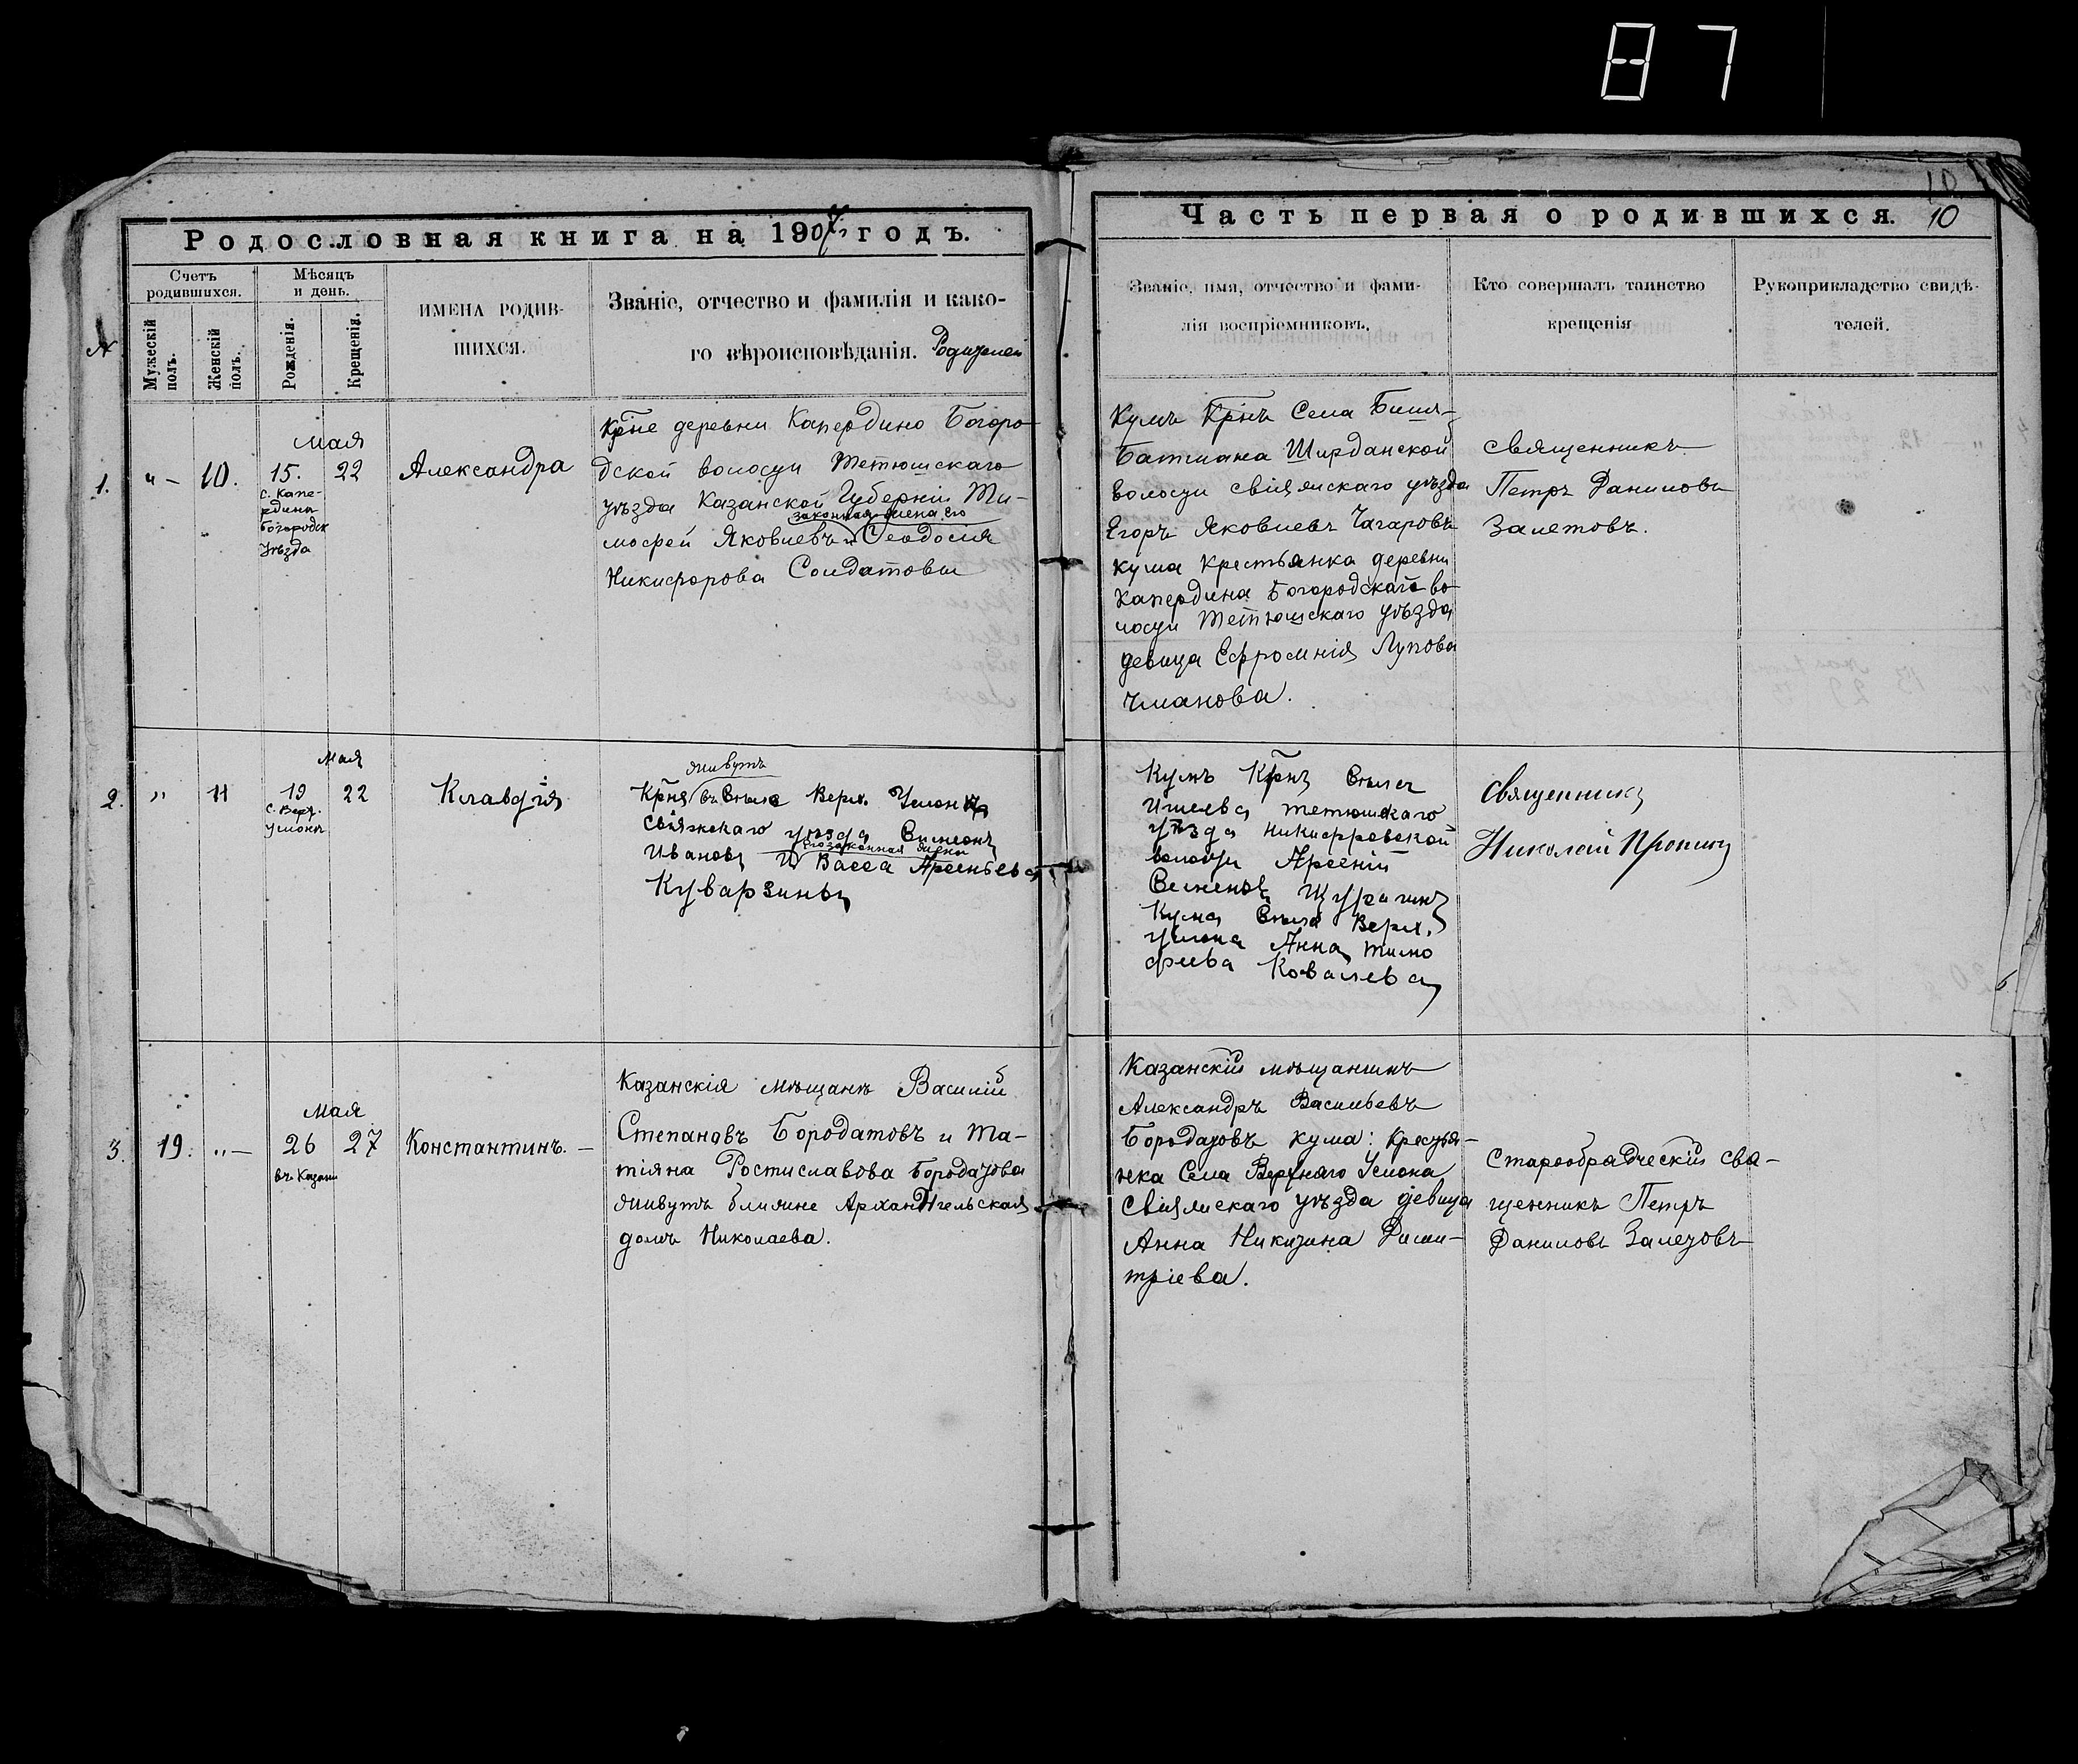 87
10
Родословная книга на 1907 годъ.
Счетъ
родившихся.
Мѣсяцъ
и день.
Мужескій
полъ.
Женскій
полъ.
Рожденія.
Крещенія.
ИМЕНА РОДИВ-
ШИХСЯ.
Званіе, отчество и фамилія и како-
го вѣроисповѣданія. Родителей
Часть первая о родившихся. 10
Званіе, имя, отчество и фами-
лія воспріемниковъ.
Кто совершалъ таинство
крещенія
Рукоприкладство свидѣ-
телей.
1. " — 10.
Мая
15. 22
с. Капе-
рдина
Богородск
уѣзда
Александра
Крне деревни Капердино Богоро-
дской волости Тетюшскаго
уѣзда Казанской Губерніи Ти-
законная жена его
мофей Яковлевъ и Ѳеодосія
Никифорова Солдатовы
Кумъ Крнъ Села Бишя-
Батмана Ширданской
волости свіяжскаго уѣзда
Егоръ Яковлевъ Чагаровъ
кума крестьянка деревни
Капердина Богородскаго во-
лости Тетюшскаго уѣзда
девица Ефросинія Лупова
Чманова.
священникъ
Петръ Даниловъ
Залетовъ.
2. " 11
Мая
19 22
с. Верх.
Услонъ
Клавдія
живутъ
Крня въ Сѣлѣ Верх. Услон
свіяжскаго уѣзда Симеонъ
его законная жена
Ивановъ И Васса Арсеньева
Куварзины
Кумъ Крнъ Сѣла
тетюшскаго
уѣзда никифровской
волости Арсеній
Сименовъ
Кума Сѣла Верх.
Услона Анна Тимо
фиева Ковалева
священникъ
Николай Пронинъ
3. 19. " —
Мая
26 27
въ Казани
Константинъ. —
Казанскія мѣщанѣ Василій
Степановъ Бородатовъ и Та-
тіяна Ростиславова Бородатова
живутъ близине Архангельская
домъ Николаева.
Казанскій мѣщанинъ
Александръ Васильевъ
Бородатовъ кума: крестья-
нка Села Верхняго Услона
Свіяжскаго уѣзда девица
Анна Никитина Дими-
тріева.
Старообрадческій свя-
щенникъ Петръ
Даниловъ Залетовъ